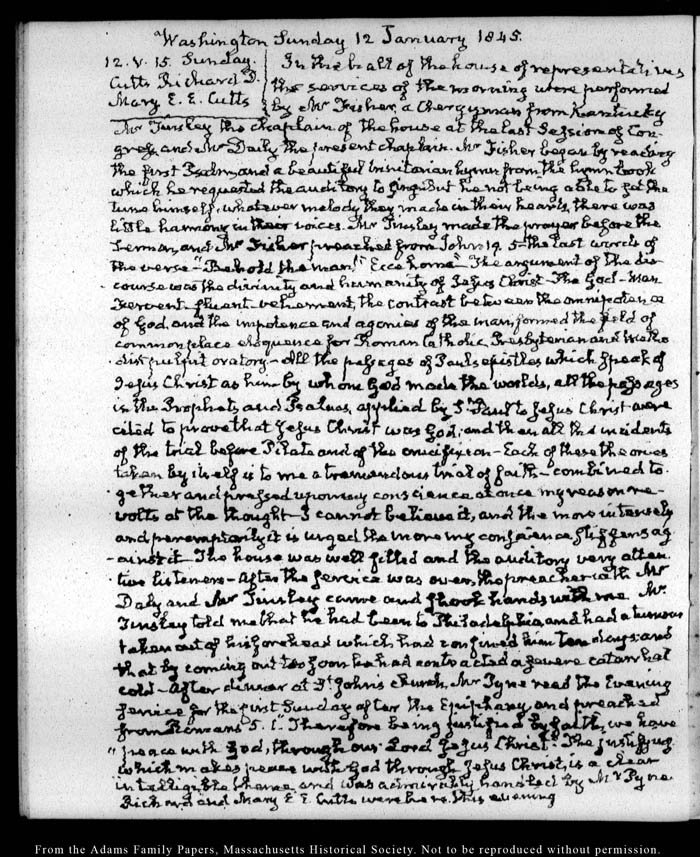 Washington Sunday 12 January 1845.
12. V. 15. Sunday.
Cutts Richard D.
Mary E. E. Cutts
In the hall of the house of representatives
the services of the morning were performed
by Mr Fisher, a Clergyman from Kentucky
Mr Tinsley the Chaplain of the house at the last Session of Con-
gress, and Mr Daily the present chaplain. Mr Fisher began by reading
the first Psalm, and a beautiful Unitarian hymn from the hymn book
which he requested the auditory to sing. But he not being able to set the
tune himself, whatever melody they made in their hearts, there was
little harmony in their voices. Mr Tinsley made the prayer before the
Sermon, and Mr Fisher preached from John 19. 5 the last words of
the verse "Behold the man." "Ecce homo" The argument of the dis-
course was the divinity and humanity of Jesus Christ—The God-Man
Fervent, fluent vehement, the contrast between the omnipotence
of God, and the impotence and agonies of the man formed the field of
common place eloquence for Roman Catholic, Presbyterian and Metho-
dist pulpit oratory—All the passages of Pauls epistles which speak of
Jesus Christ as him by whom God made the worlds, all the passages
in the Prophets and Psalms, applied by St Paul to Jesus Christ were
cited to prove that Jesus Christ was God, and then all the incidents
of the trial before Pilate and of the crucifixion—Each of these theories
taken by itself is to me a tremendous trial of faith—combined to-
gether and pressed upon my conscience at once my reason re-
volts at the thought—I cannot believe it, and the more intensely
and peremptorily it is urged the more my conscience stiffens ag-
ainst it. The house was well filled and the auditory very atten-
tive listeners—After the service was over, the preacher with Mr
Daly and Mr Tinsley came and shook hands with me. Mr.
Tinsley told me that he had been to Philadelphia, and had a tumour
taken out of his forehead which had confined him ten days: and
that by coming out too soon he had contracted a severe catarrhal
cold—After dinner at St Johns church, Mr Pyne read the Evening
service for the first Sunday after the Epiphany and preached
from Romans 5. 1. "Therefore being justified by faith, we have
"peace with God, through our Lord Jesus Christ." The justifying
which makes peace with God through Jesus Christ, is a clear
intelligible theme and was admirably handled by Mr Pyne
Richard and Mary E E Cutts were here this evening
From the Adams Family Papers, Massachusetts Historical Society. Not to be reproduced without permission.